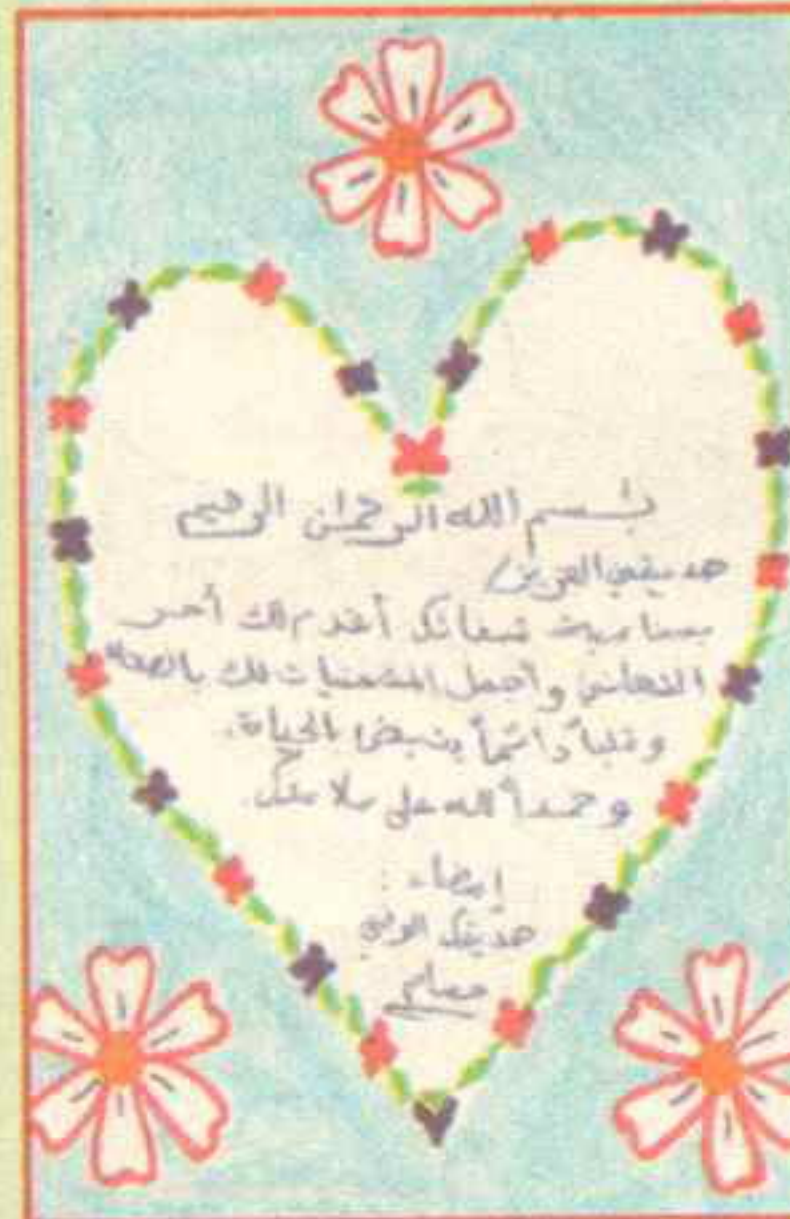 بسم الله الرحمان الرحيم
صديقي العزيز/
بمناسبة شفائك أقدم لك أحسن
التهاني وأجمل المتمنيات لك بالصحة
وقلباً دائماً ينبض بالحياة.
وحمداً لله على سلامتك.
إمضاء:
صديقك الوفي